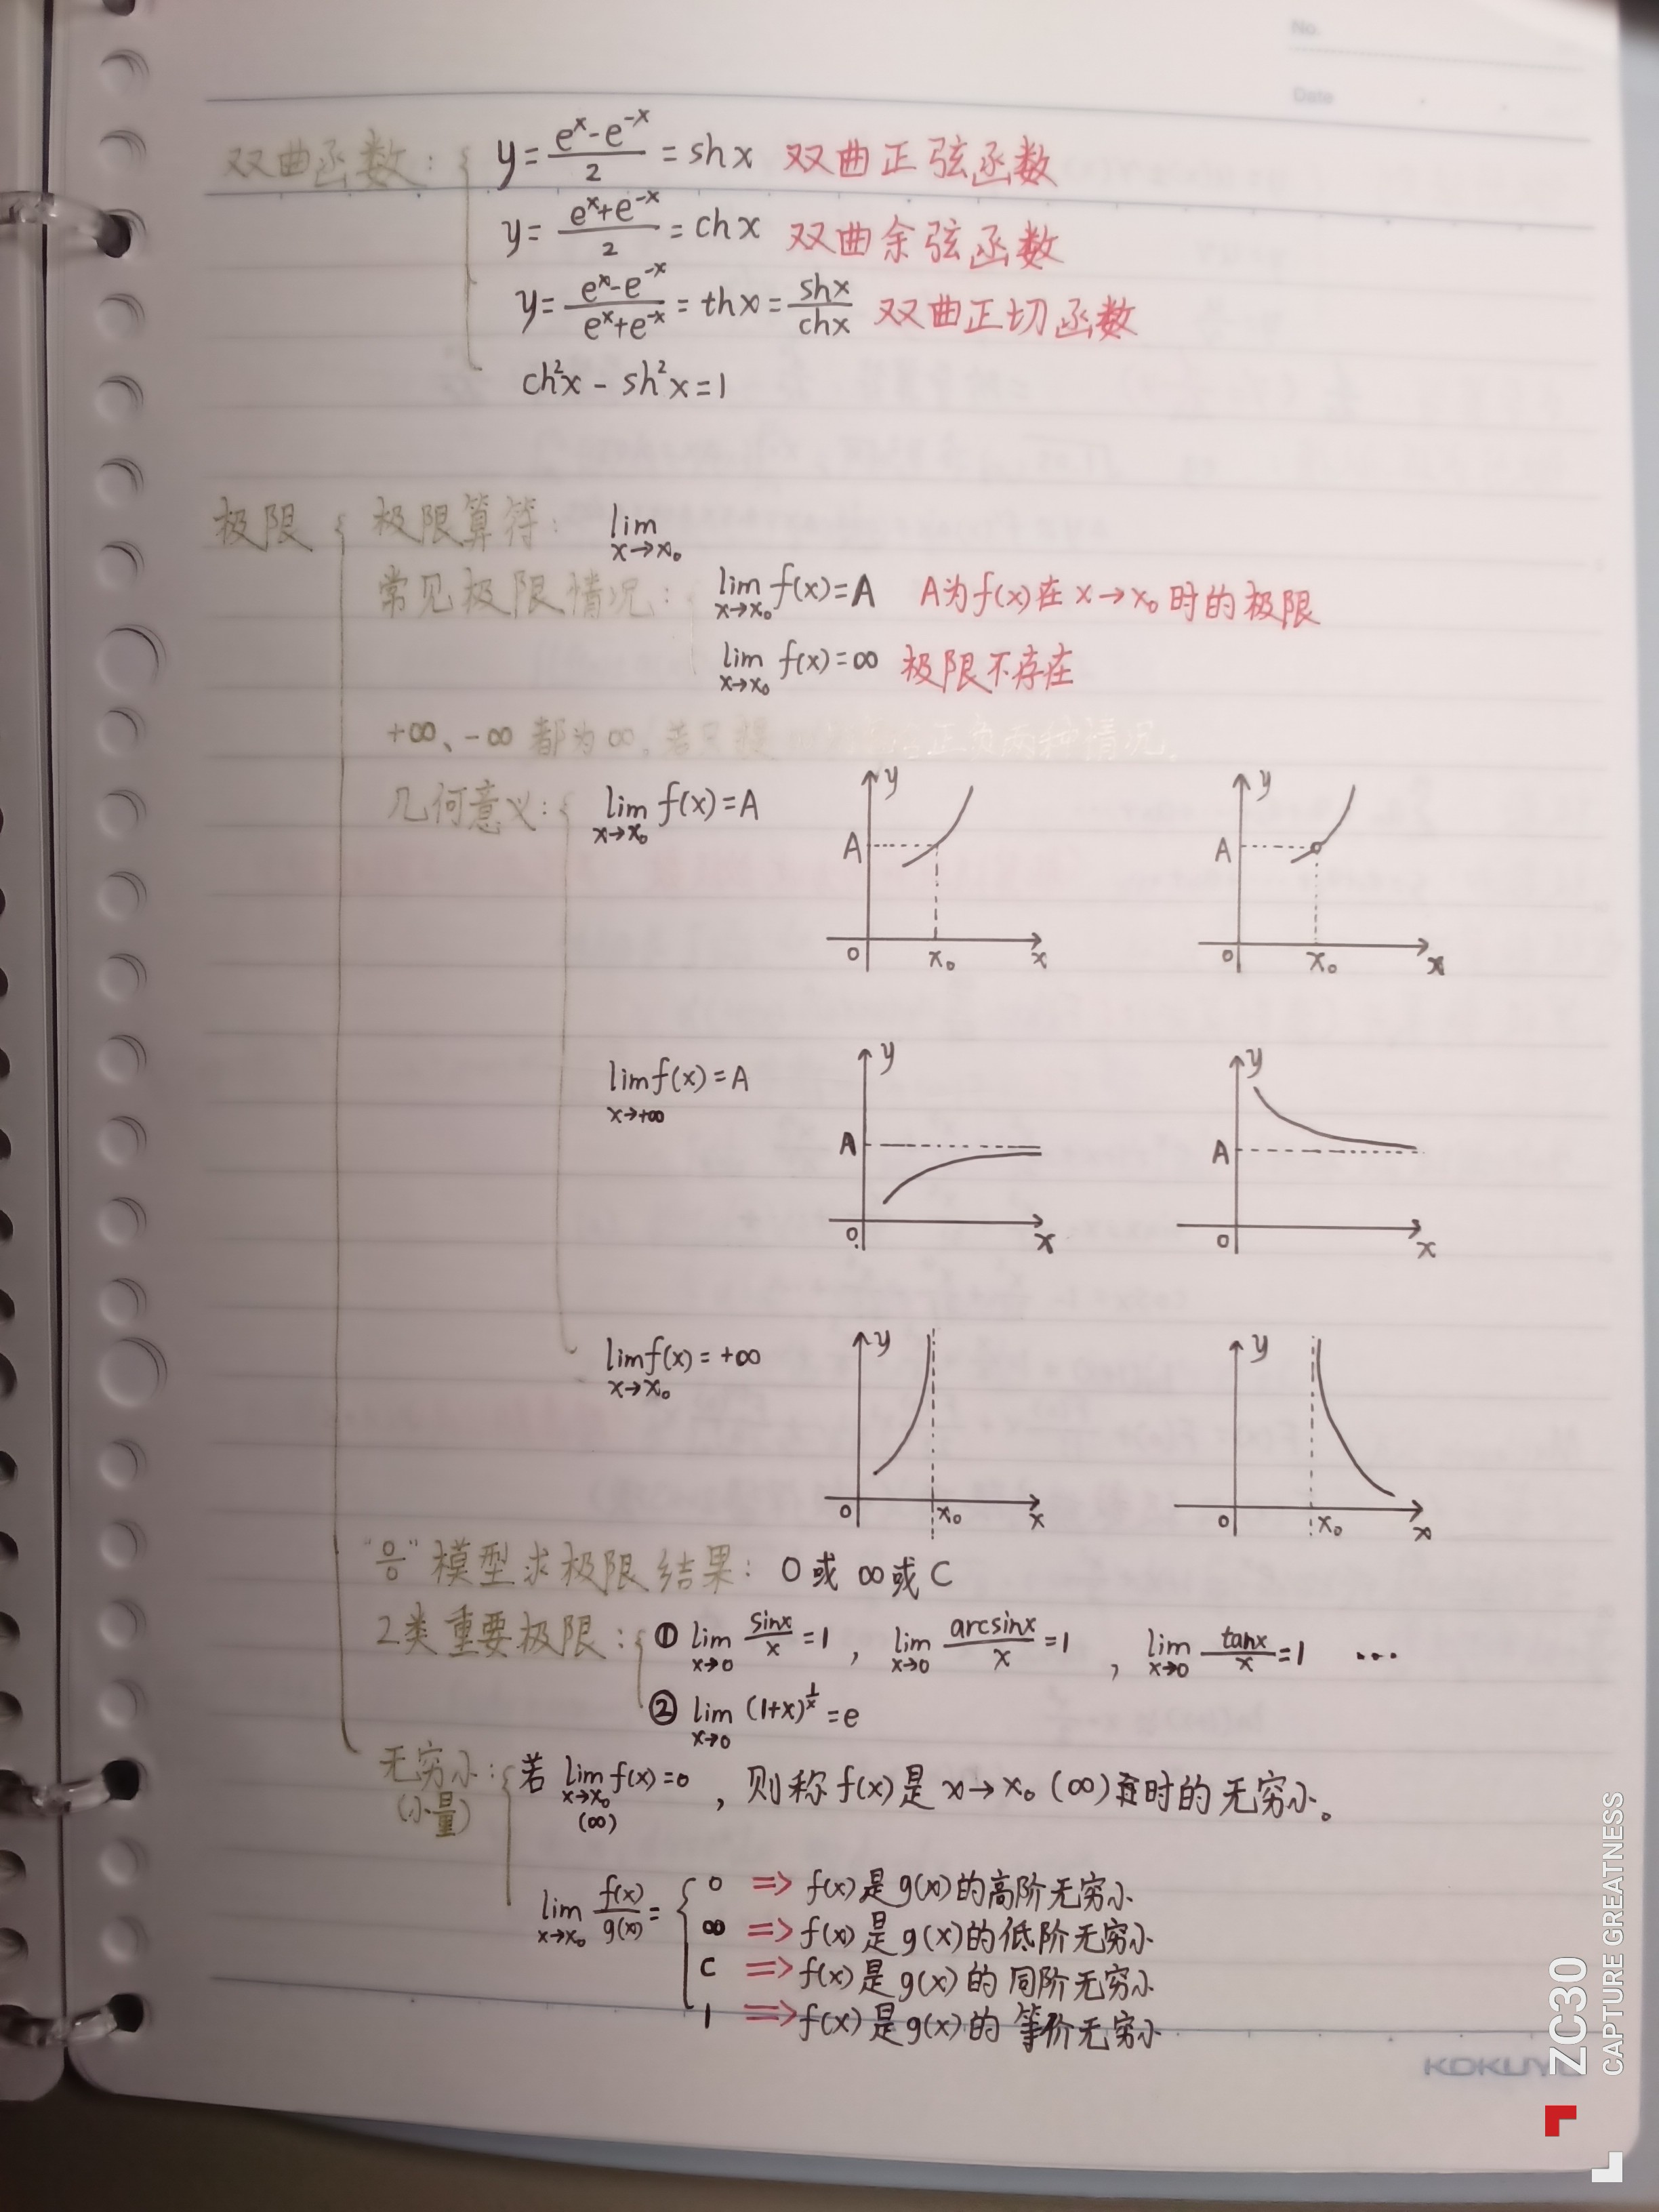 No.
Date
双曲函数: { y = (e^x - e^-x)/2 = sh x 双曲正弦函数
y = (e^x + e^-x)/2 = ch x 双曲余弦函数
y = (e^x - e^-x)/(e^x + e^-x) = th x = shx/chx 双曲正切函数
ch²x - sh²x = 1
极限 { 极限算符: lim x→x₀
常见极限情况: { lim x→x₀ f(x) = A A为f(x)在x→x₀时的极限
lim x→x₀ f(x) = ∞ 极限不存在
+∞、-∞ 都为∞, 若只提 正负两种情况.
几何意义: { lim x→x₀ f(x) = A
y A 0 x₀ x
y A 0 x₀ x
lim x→+∞ f(x) = A
y A 0 x
y A 0 x
lim x→x₀ f(x) = +∞
y 0 x₀ x
y 0 x₀ x
"0/0" 模型求极限结果: 0或∞或C
2类重要极限: { ① lim x→0 sinx/x = 1, lim x→0 arcsinx/x = 1, lim x→0 tanx/x = 1 ...
② lim x→0 (1+x)^(1/x) = e
无穷小: { 若 lim x→x₀ (∞) f(x) = 0, 则称f(x)是x→x₀(∞)时的无穷小。
(小量)
lim x→x₀ f(x)/g(x) = { 0 => f(x)是g(x)的高阶无穷小
∞ => f(x)是g(x)的低阶无穷小
C => f(x)是g(x)的同阶无穷小
1 => f(x)是g(x)的等价无穷小
KOKUYO
ZC30
CAPTURE GREATNESS